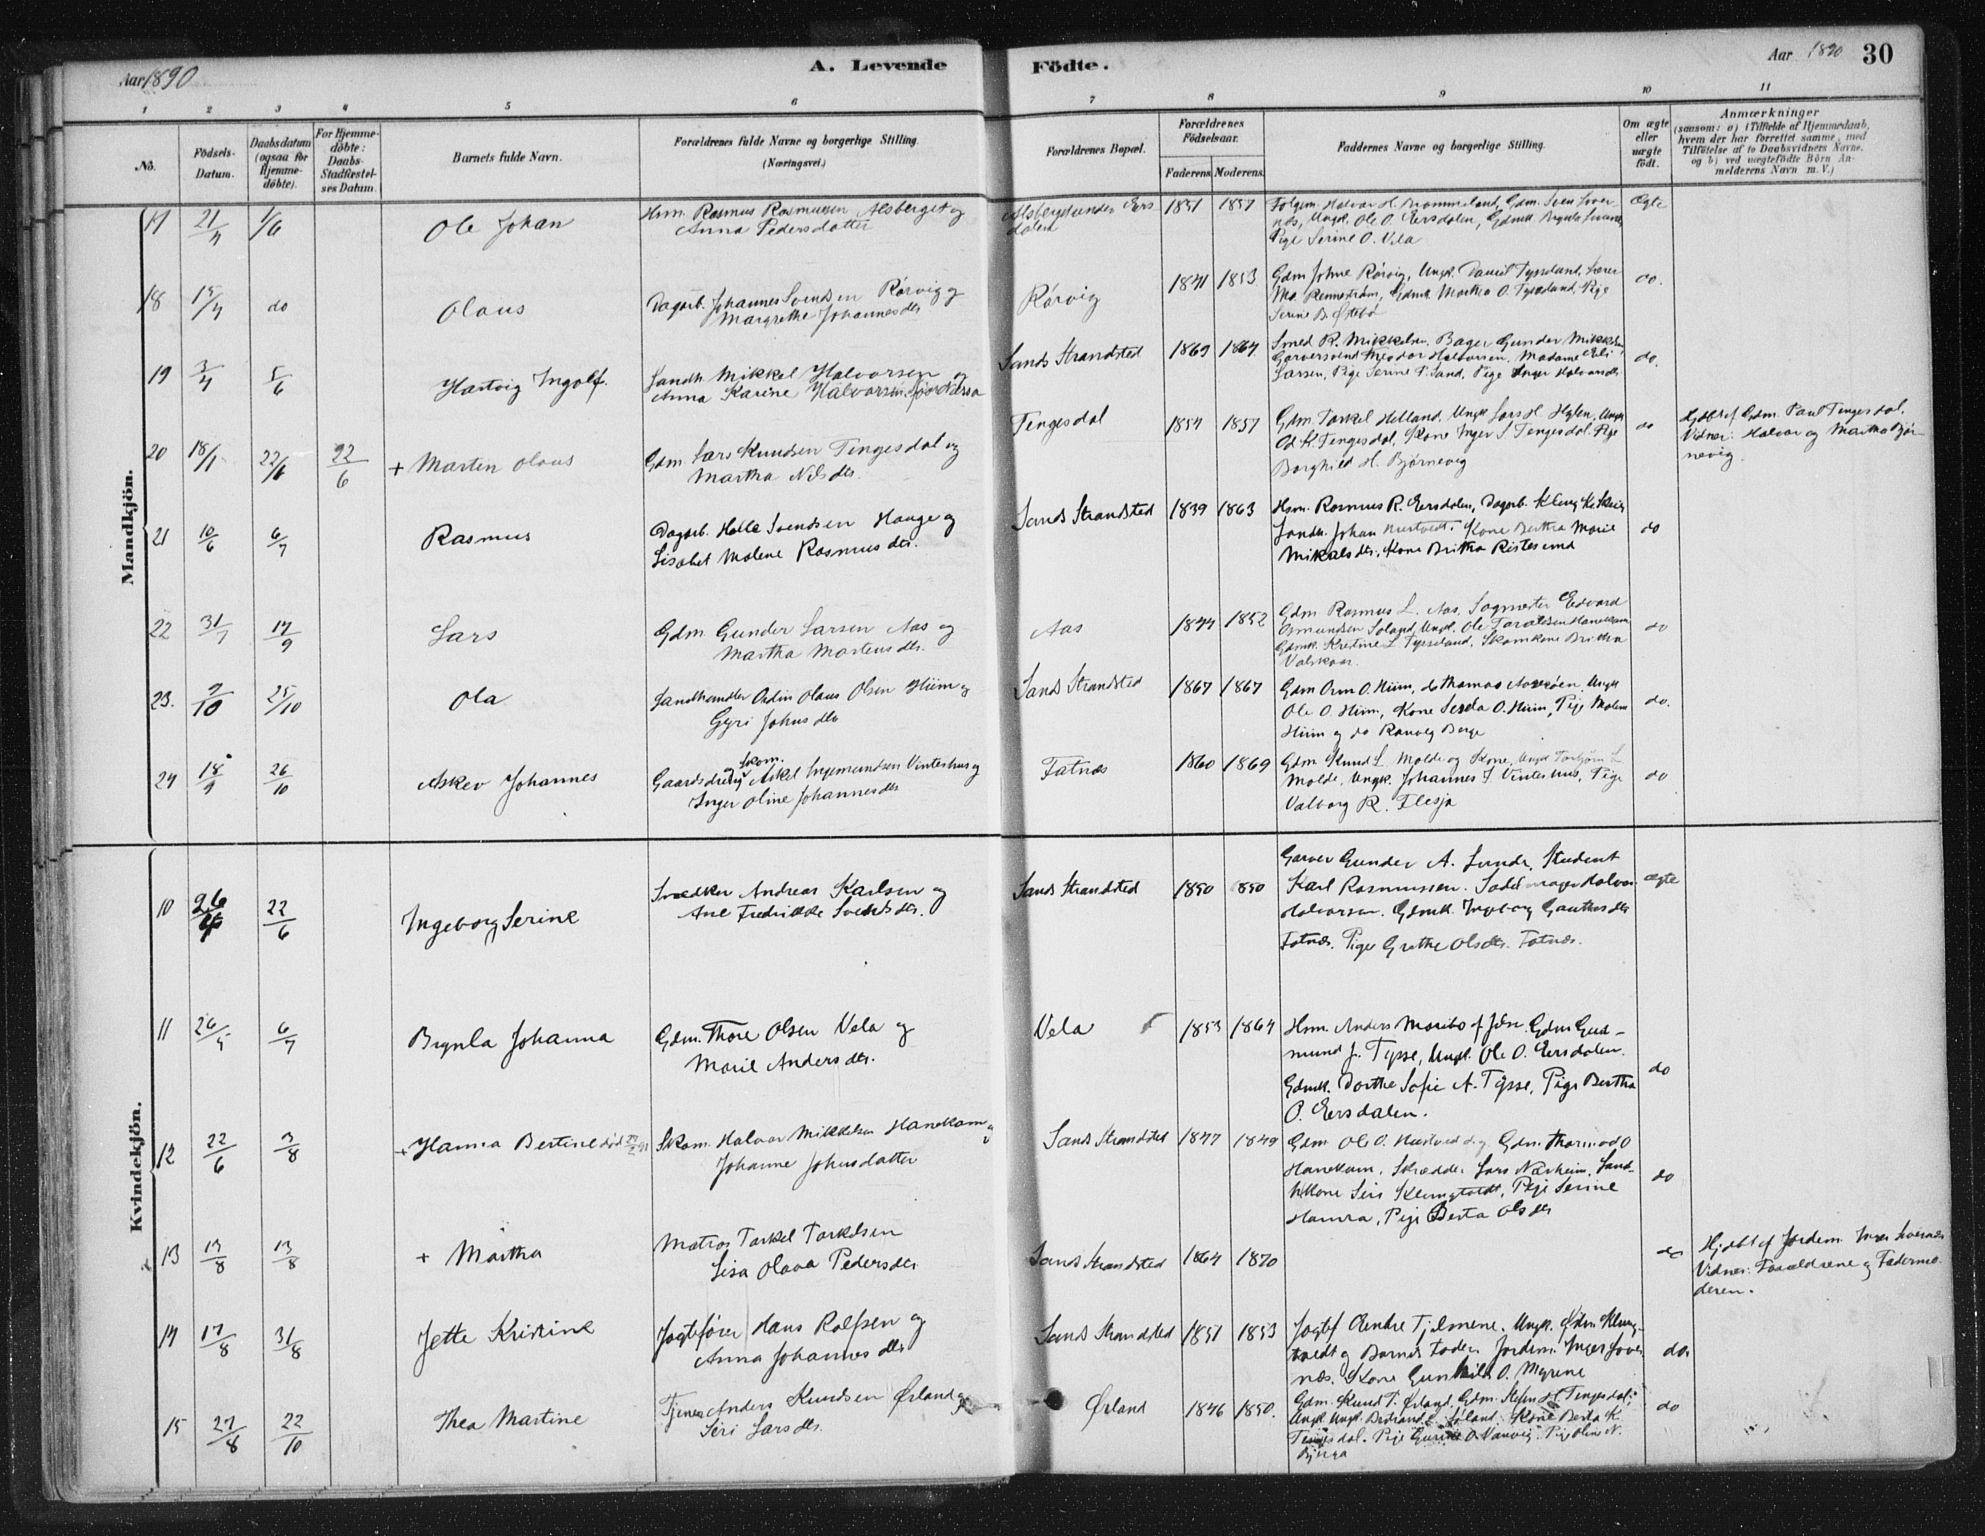 Aar 1890
A. Levende
Födte.
Aar 1890
30
1 2 3 4 5 6 7 8 9 10 11
No.
Födsels-
Datum.
Daabsdatum
(ogsaa for
Hjemme-
döbte).
For Hjemme-
döbte:
Daabs-
Stadfæstel-
ses Datum.
Barnets fulde Navn.
Forældrenes fulde Navne og borgerlige Stilling.
(Næringsvei.)
Forældrenes Bopæl.
Forældrenes
Födselsaar.
Faderens. Moderens.
Faddernes Navne og borgerlige Stilling.
Om ægte
eller
uægte
födt.
Anmærkninger
(saasom: a) i Tilfælde af Hjemmedaab,
hvem der har forrettet samme, med
Tilföielse af to Daabsvidners Navne,
og b) ved uægtefödte Börn An-
melderens Navn m. V.)
Mandkjön.
17 21/4 1/6 Ole Johan
Hsm. Rasmus Rasmussen Alsberget og
Anna Pedersdatter
Alsberget under Ers
dalen
1851 1857
Gdm. Sven
Ungk. Ole O. Eersdalen, Gdmk.
Pige Serine O. Vela
Ægte
18 15/4 do Olaus
Dagarb. Johannes Svendsen Rörvig og
Margrethe Johannesdtr
Rörvig
1841 1853
Gdm Johne Rörvig, Ungk. Daniel Tysseland, Lærer
Gdmk Martha O. Tysseland, Pige
Serine B. Östebö
do.
19 3/4 8/6 Hartvig Ingolf.
Landh. Mikkel Halvorsen og
Anna Karine Halvorsen
Sands Strandsted
1869 1864
Smed R. Mikkelsen. Bager Gunder Mikkelsen
Garversvend Theodor Halvorsen, Madame
Larsen, Pige Serine P. Sand, Pige Inger Halvorsdtr
do.
20 18/1 22/6 22/6 + Marten Olaus
Gdm. Lars Knudsen Tengesdal og
Martha Nilsdtr.
Tengesdal
1854 1857
Gdm Torkel Helland. Ungk Lars H. Hylen, Ungk
Od. K. Tengesdal, Kone Inger S Tengesdal. Pige
Borghild H. Bjørnevig
do
Hjdbt af Gdm. Paul Tengesdal.
Vidner: Halvor og Martha Bjør-
nevig.
21 10/6 6/7 Rasmus
Dagarb. Helle Svendsen Hauge og
Lisabet Malene Rasmusdtr.
Sands Strandsted
1839 1863
Hsm. Rasmus R. Eersdalen, Dagarb.
Landh. Johan Kone Bertha Marie
Mikalsdtr. Kone Britha
do
22 31/7 14/9 Lars
Gdm. Gunder Larsen Aas og
Martha Martensdtr.
Aas
1844 1852
Gdm Rasmus L. Aas, Sogmester Edvard
Osmundsen Soland, Ungk. Ole
Gdmk. Kristine L. Tysseland, Skomkone Britha
do
23. 9/10 25/10 Ola
Landhandler Odin Olaus Olsen Hiim og
Gyri Johnsdtr
Sands Strandsted
1867 1867
Gdm Orm O. Hiim, do Thomas Ungk
Ole O. Hiim, Kone O. Hiim, Pige Malene
Hiim og do Ranveig Berge
do.
24 18/9 26/10 Asker Johannes
Gaardsdreng og Skom. Askel Ingemundsen Vinterhus og
Inger Oline Johannesdtr
Fatnes
1860 1869
Gdm Knud L. Molde og Kone, Ungk Torbjørn L
Molde, Ungk. Johannes J. Vinterhus, Pige
Valborg R. Flesja
do
Kvindekjön.
10 26/4 22/6 Ingeborg Serine
Snedker Andreas Karlsen og
Ane Fredrikke Svendsdtr.
Sands Strandsted
1850 1850
Garver Gunder A. Lunde, Student
Karl Rasmussen. Sadelmager Halvor
Halvorsen. Gdmk. Ingeborg Gauthesdtr
Fatnes. Pige Grethe Olsdtr. Fatnes.
ægte
11 26/5 6/7 Brynla Johanna
Gdm. Thore Olsen Vela og
Marie Andersdtr.
Vela
1853 1864
Hsm. Anders Maribo af Jelse. Gdm Gud-
mund J. Tysse, Ungk. Ole O. Eersdalen.
Gdmk. Dorthe Sofie A. Tysse, Pige Bertha
O. Eersdalen.
do
12 22/6 3/8 + Hanna Bertine død
Skom. Halvor Mikkelsen Hanekam og
Johanne Johnsdatter
Sands Strandsted
1847 1849
Gdm Ole O. Hustved og Gdm. Thormod O
Hanekam, Skrædder Lars Nærheim. Land-
hkone Siri Klungtvedt, Pige Serine
Hamra, Pige Berta Olsdtr
do
x 13 13/8 13/8 + Martha
Matros Torkel Torkelsen
Lisa Olava Pedersdtr
Sands Strandsted
1864 1870
do
Hjdbt af Jordem. Inger
Vidner: Forældrene og Fadermo-
deren.
14 17/8 31/8 Jette Kristine
Jagtefører Hans Rolfsen og
Anna Johannesdtr
Sands Strandsted
1851 1853
Jagtef Endre Tjelmene. Ungk. Klung-
tvedt og Barnets Fader. Jordem. Inger Lover-
næs. Kone Gunhild O. Myrene
do.
15 27/8 22/10 Thea Martine
Tjener Anders Knudsen Ørland og
Siri Larsdtr.
Ørland
1846 1850.
Gdm. Knud T. Ørland. Gdm. Stefen H Tengesdal,
Ungk. Bertrand L. Söland. Kone Berta K.
Tengesdal. Pige O. Vanvig. Pige Oline N.
do